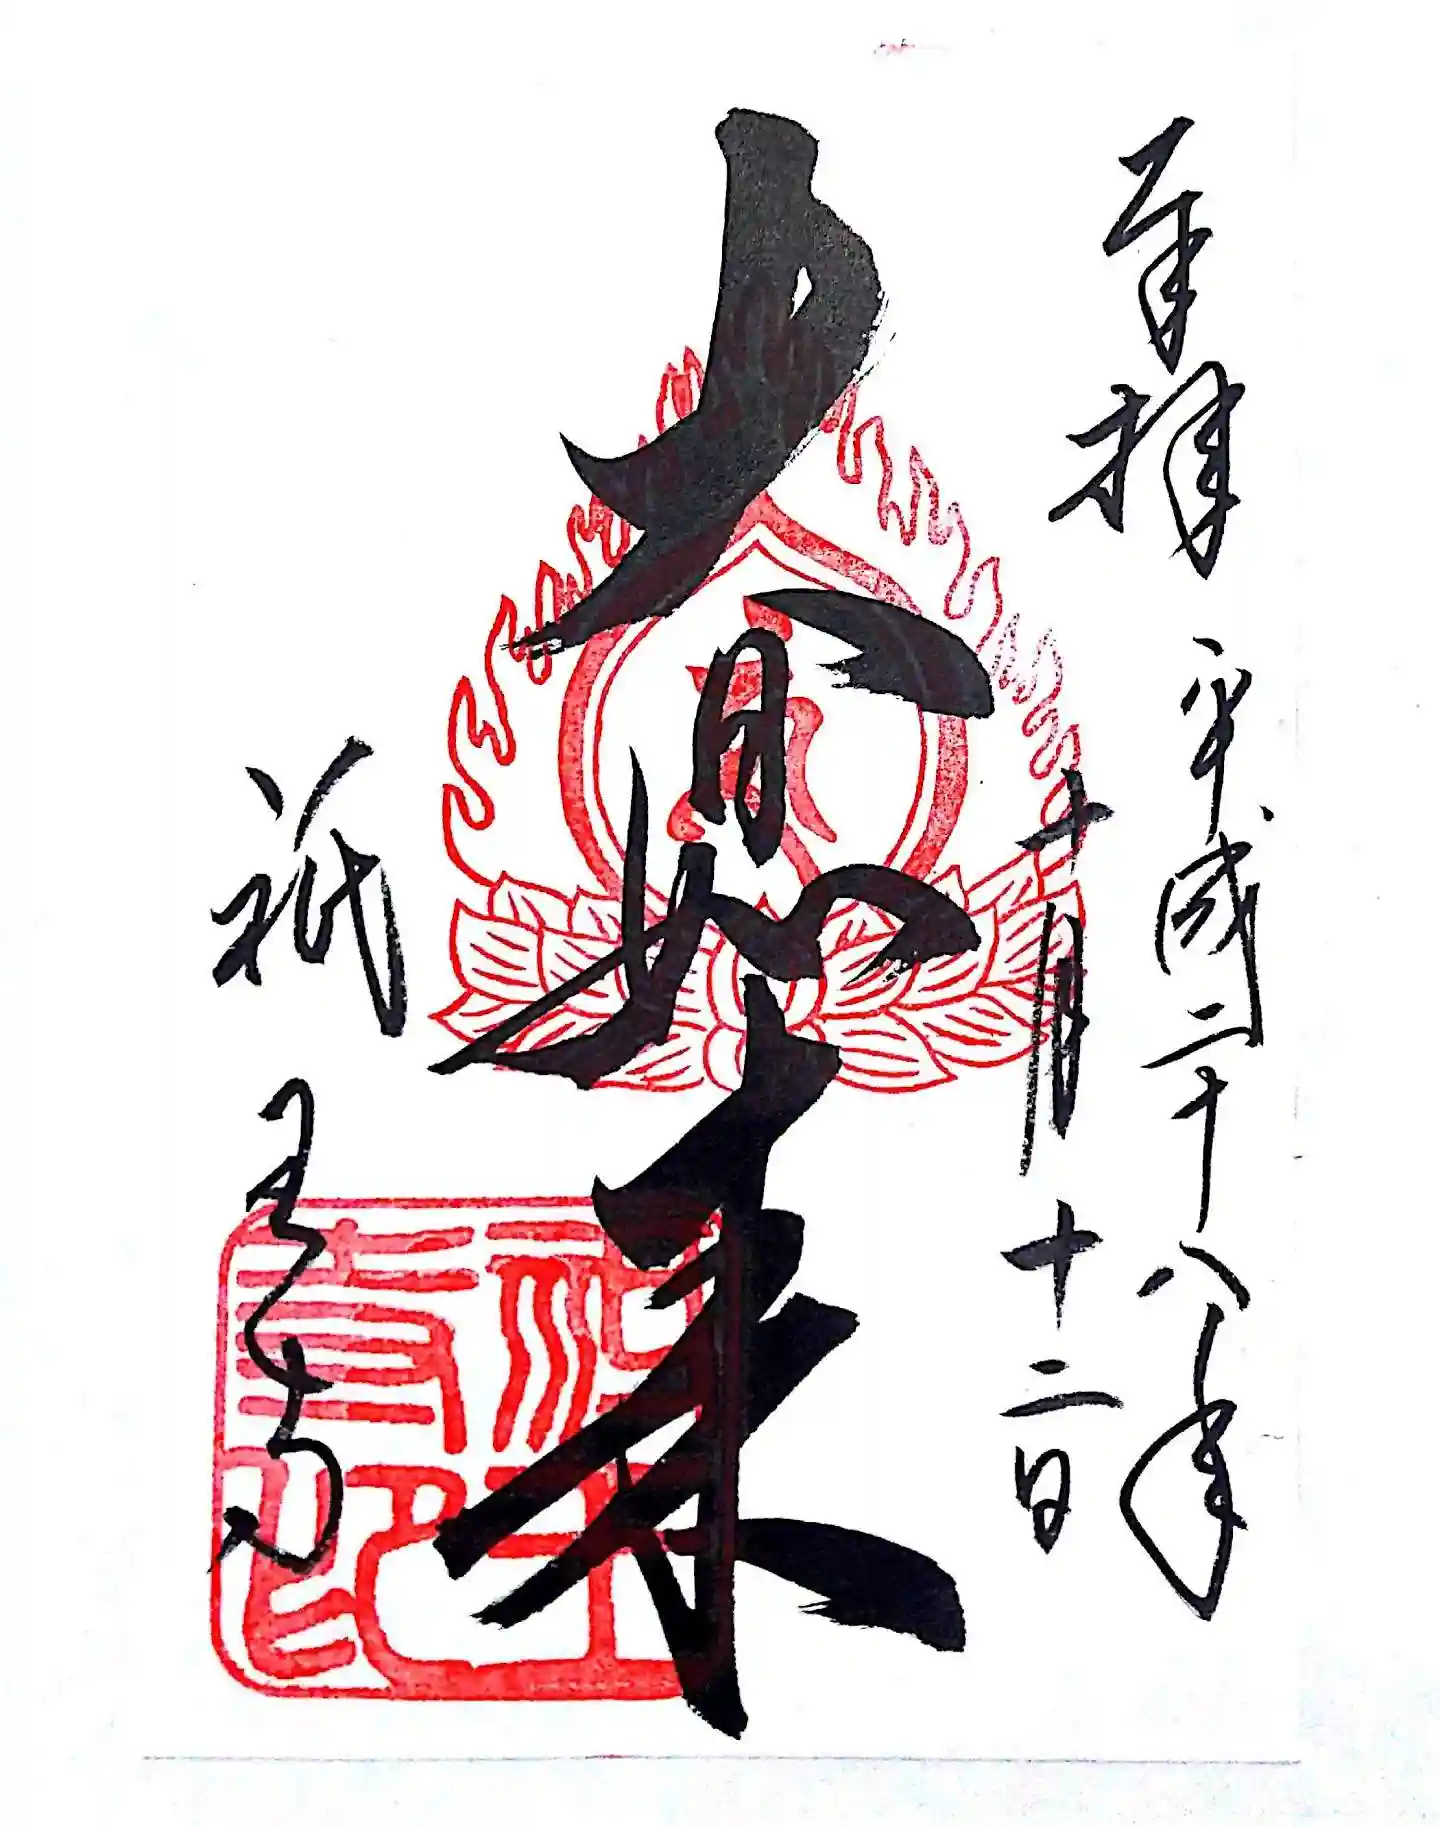 奉拝 平成二十八年
十月十二日
大日如来
祇王寺